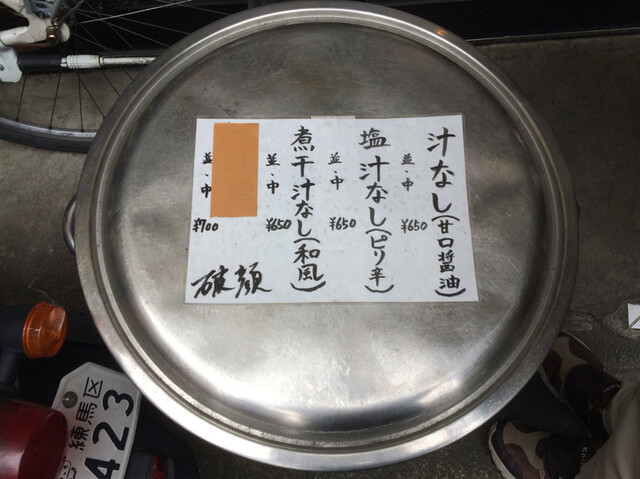 汁なし(甘口醤油)
並、中 ¥650
塩汁なし(ピリ辛)
並、中 ¥650
煮干汁なし(和風)
並、中 ¥650
並、中 ¥700
破顔
練馬区
423